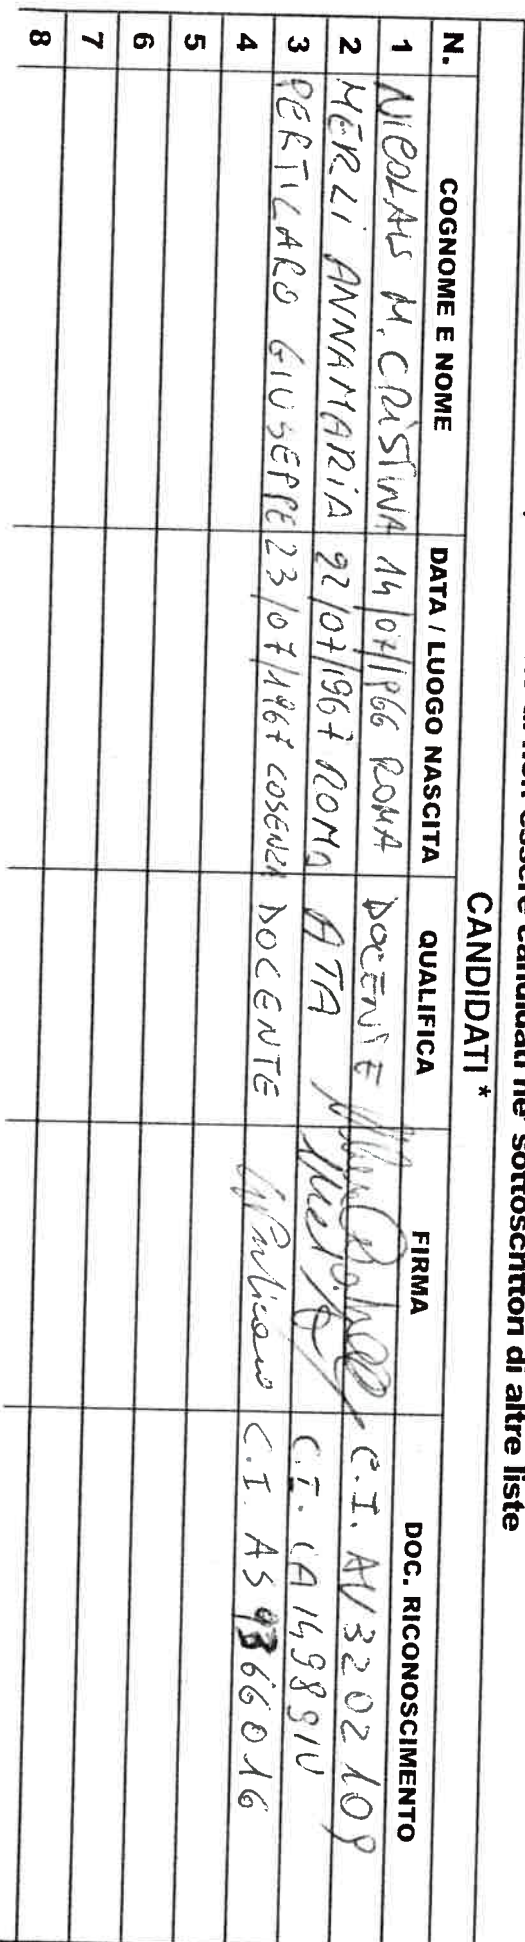 non essere candidati ne' sottoscrittori di altre liste
CANDIDATI *
N. COGNOME E NOME DATA / LUOGO NASCITA QUALIFICA FIRMA DOC. RICONOSCIMENTO
1 NICOLAIS M. CRISTINA 14/07/1966 ROMA DOCENTE C.I. AV3202109
2 MERLI ANNAMARIA 22/07/1967 ROMA ATA C.I. CA14989IU
3 PERTICARO GIUSEPPE 23/07/1967 COSENZA DOCENTE C.I. AS9366016
4
5
6
7
8